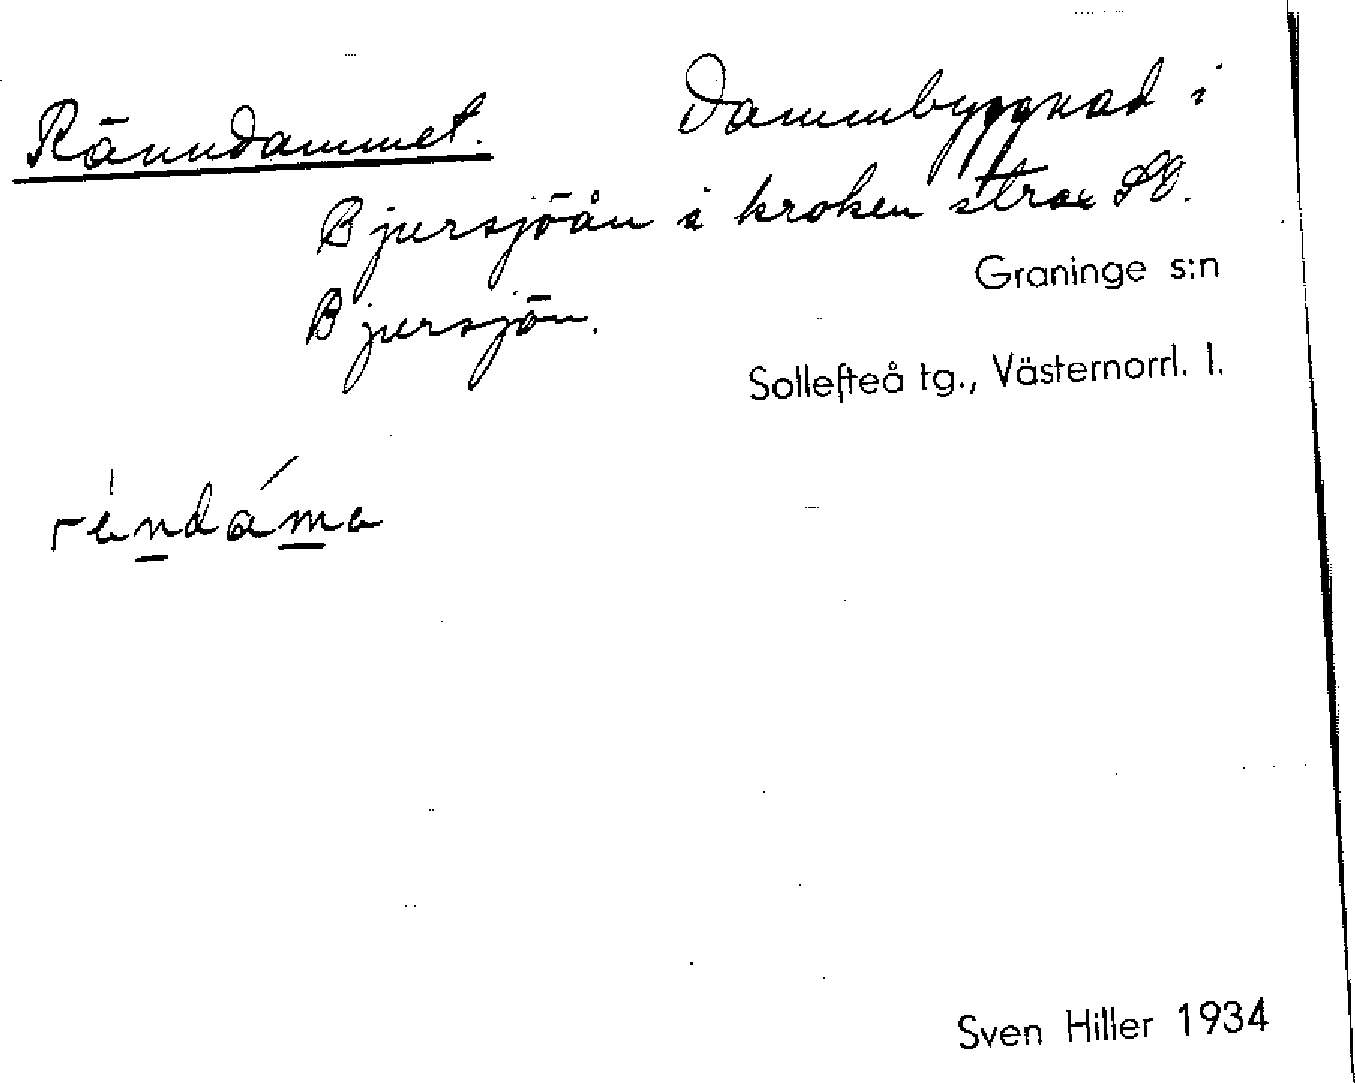 Ränndammet. Dammbyggnad i
Bjursjöån i kroken strax SO.
Bjursjön.
Graninge s:n
Sollefteå tg., Västernorrl. l.
Sven Hiller 1934